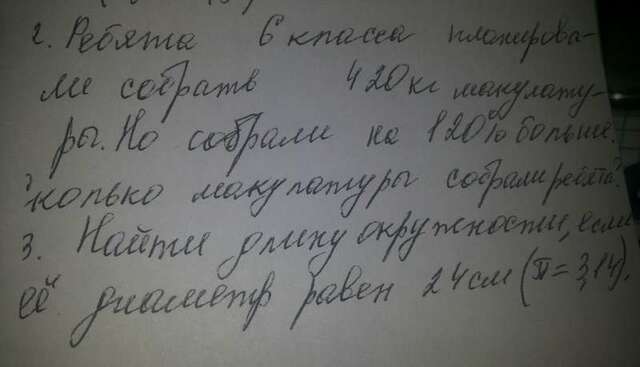 2. Ребята 6 класса планирова-
ли собрать 420 кг макулату-
ры. Но собрали на 120% больше.
колько макулатуры собрали ребята?
3. Найти длину окружности, если
её диаметр равен 24 см (π = 3,14).